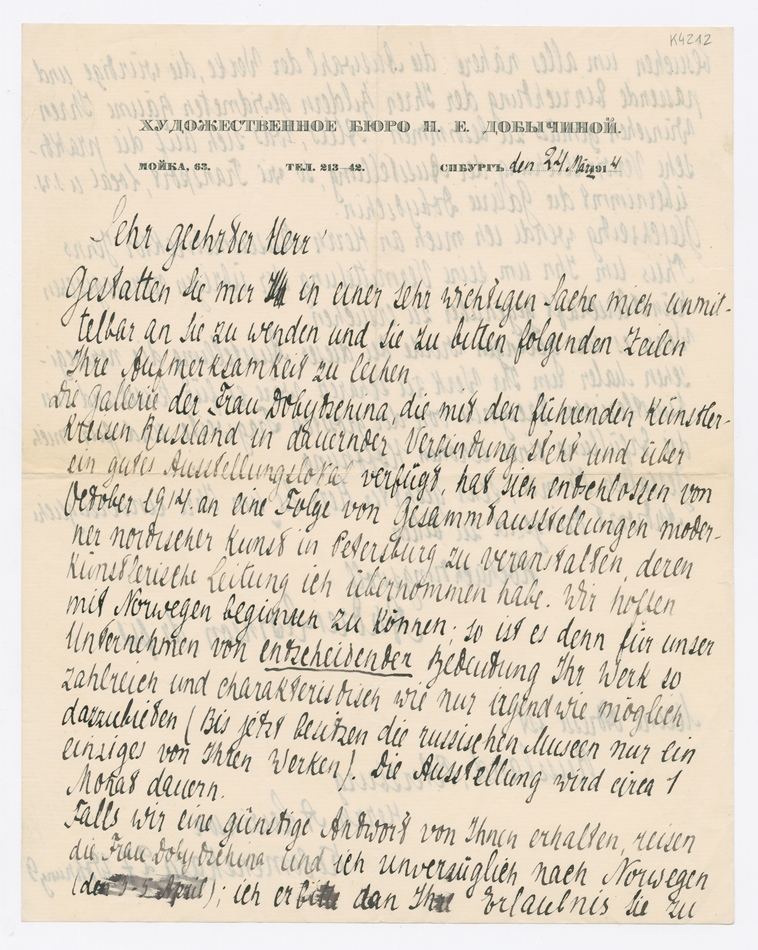 K4212
ХУДОЖЕСТВЕННОЕ БЮРО Н. Е. ДОБЫЧИНОЙ.
МОЙКА, 63. ТЕЛ. 213-42. СПБУРГЪ den 24 März 1914
Sehr geehrter Herr!
Gestatten Sie mir in einer sehr wichtigen Sache mich unmit-
telbar an Sie zu wenden und Sie zu bitten folgenden Zeilen
Ihre Aufmerksamkeit zu leihen
Die Gallerie der Frau Dobytschina, die mit den führenden Künstler-
kreisen Russland in dauernder Verbindung steht und über
ein gutes Ausstellungslokal verfügt, hat sich entschlossen von
October 1914 an eine Folge von Gesammtausstellungen moder-
ner nordischer Kunst in Petersburg zu veranstalten, deren
künstlerische Leitung ich übernommen habe. Wir hoffen
mit Norwegen beginnen zu können; so ist es denn für unser
Unternehmen von entscheidender Bedeutung Ihr Werk so
zahlreich und charakteristisch wie nur irgendwie möglich
darzubieten (Bis jetzt besitzen die russischen Museen nur ein
einziges von Ihren Werken). Die Ausstellung wird circa 1
Monat dauern.
Falls wir eine günstige Antwort von Ihnen erhalten, reisen
die Frau Dobytschina und ich unverzüglich nach Norwegen
(den 3-5 April); ich erbitte dan Ihre Erlaubnis Sie zu